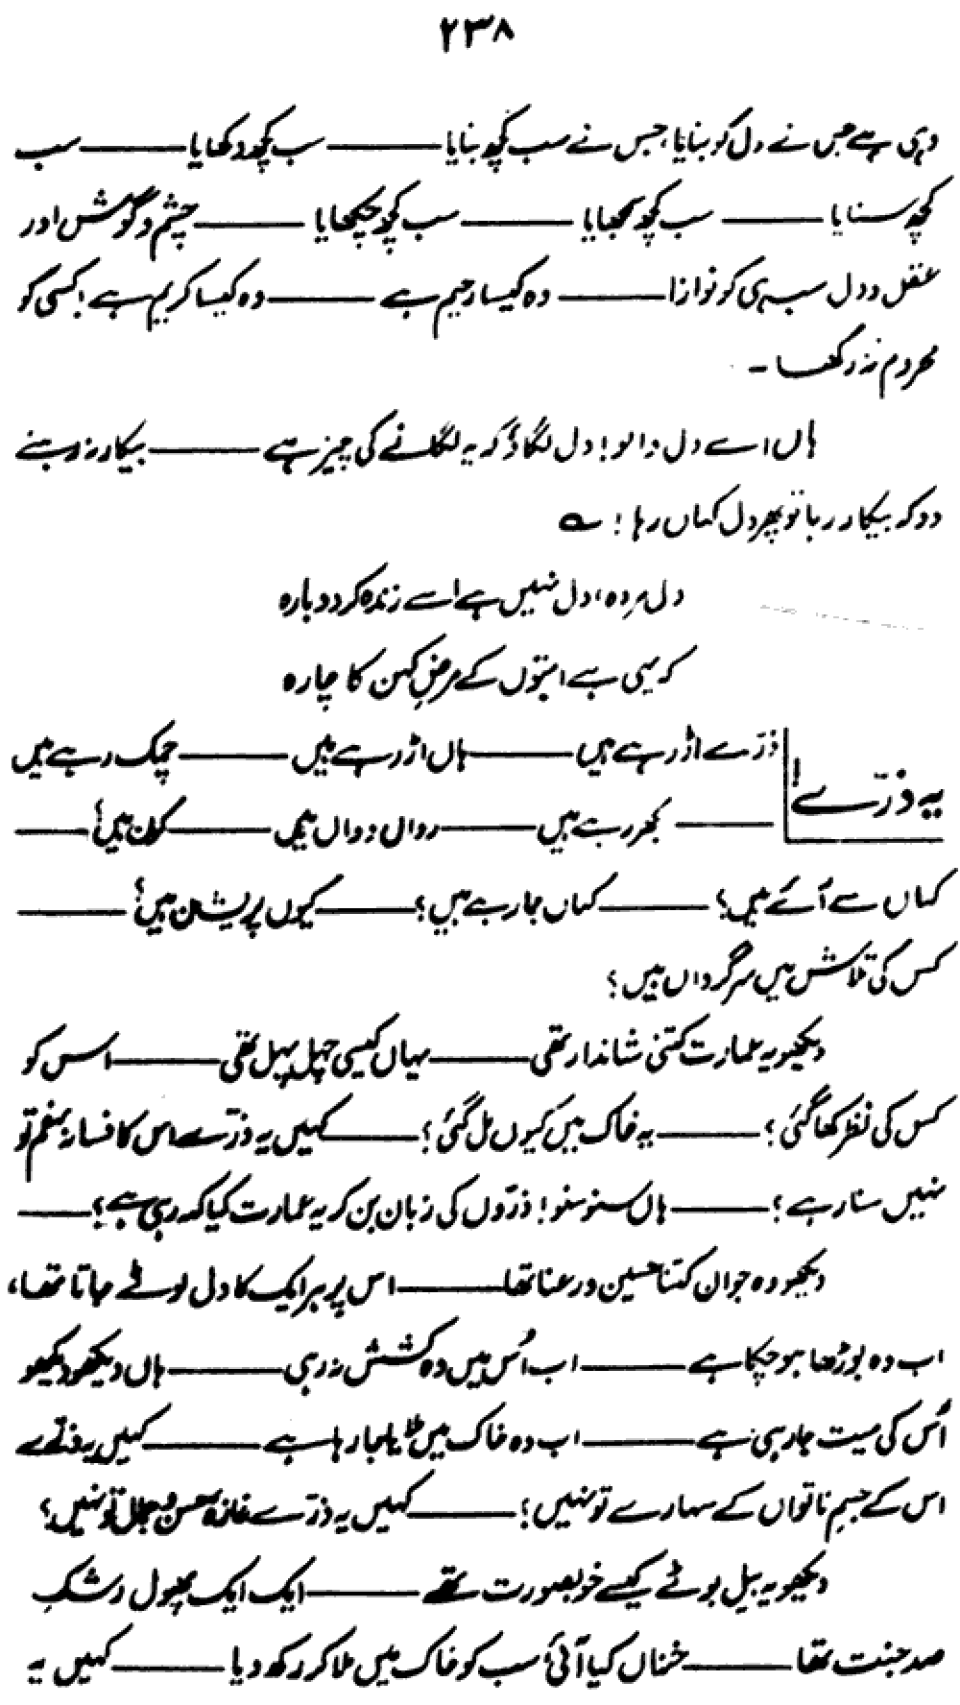 ۲۳۸
وہی ہے جس نے دل کو بنایا، جس نے سب کچھ بنایا ——— سب کچھ دکھایا ——— سب
کچھ سنایا ——— سب کچھ سمجھایا ——— سب کچھ چکھایا ——— چشم و گوش اور
عقل و دل سب ہی کو نوازا ——— وہ کیسا رحیم ہے ——— وہ کیسا کریم ہے! کسی کو
محروم نہ رکھا۔
ہاں اے دل والو! دل لگاؤ کہ یہ لگانے کی چیز ہے ——— بیکار نہ رہنے
دو کہ بیکار رہا تو پھر دل کہاں رہا! ؎
دل مردہ، دل نہیں ہے اسے زندہ کر دوبارہ
کہ یہی ہے امتوں کے مرضِ کہن کا چارہ
یہ ذرّے!
ذرّے اڑ رہے ہیں ——— ہاں اڑ رہے ہیں ——— چمک رہے ہیں
——— بکھر رہے ہیں ——— رواں دواں ہیں ——— کون ہیں؟ ———
کہاں سے آئے ہیں؟ ——— کہاں جا رہے ہیں؟ ——— کیوں پریشان ہیں؟ ———
کس کی تلاش میں سرگرداں ہیں؟
دیکھو یہ عمارت کتنی شاندار تھی ——— یہاں کیسی چہل پہل تھی ——— اس کو
کس کی نظر کھا گئی؟ ——— یہ خاک میں کیوں مل گئی؟ ——— کہیں یہ ذرّے اس کا فسانۂ غم تو
نہیں سنا رہے؟ ——— ہاں سنو سنو! ذرّوں کی زبان بن کر یہ عمارت کیا کہہ رہی ہے؟ ———
دیکھو وہ جوان کتنا حسین و رعنا تھا ——— اس پر ہر ایک کا دل لوٹے جاتا تھا،
اب وہ بوڑھا ہو چکا ہے ——— اب اُس میں وہ کشش نہ رہی ——— ہاں دیکھو دیکھو
اُس کی میت جا رہی ہے ——— اب وہ خاک میں ملایا جا رہا ہے ——— کہیں یہ ذرّے
اس کے جسمِ ناتواں کے سہارے تو نہیں؟ ——— کہیں یہ ذرّے غازۂ حسن و جمال تو نہیں؟
دیکھو یہ بیل بوٹے کیسے خوبصورت تھے ——— ایک ایک پھول رشکِ
صد جنت تھا ——— خزاں کیا آئی سب کو خاک میں ملا کر رکھ دیا ——— کہیں یہ